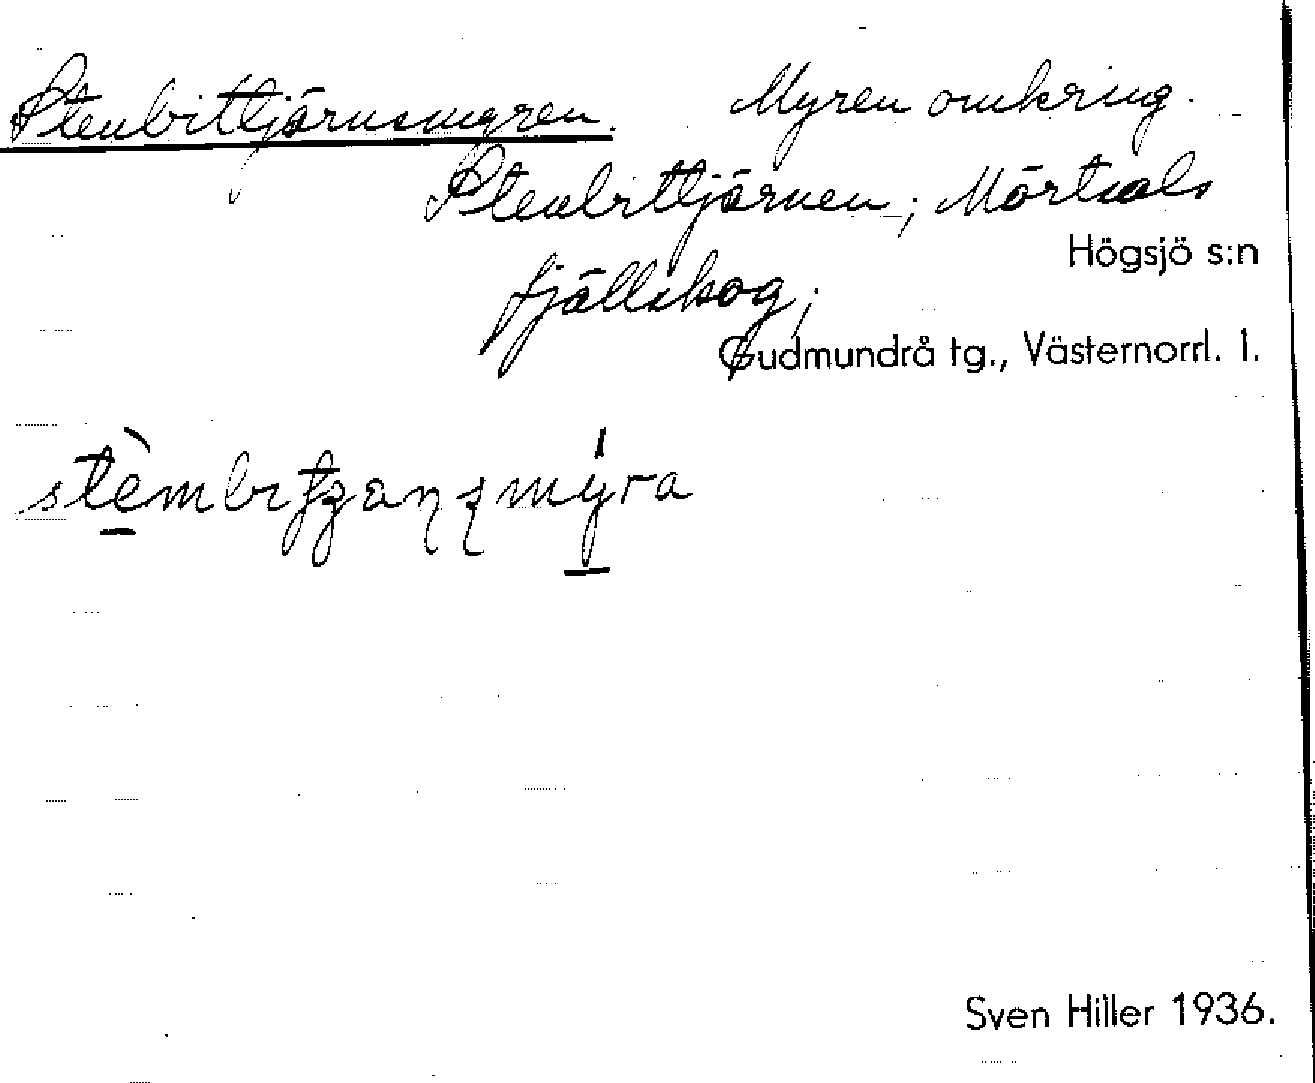 Stenbittjärnsmyren. Myren omkring
Stenbittjärnen; Mörtsals
Högsjö s:n
fjällskog;
Gudmundrå tg., Västernorrl. l.
Sven Hiller 1936.